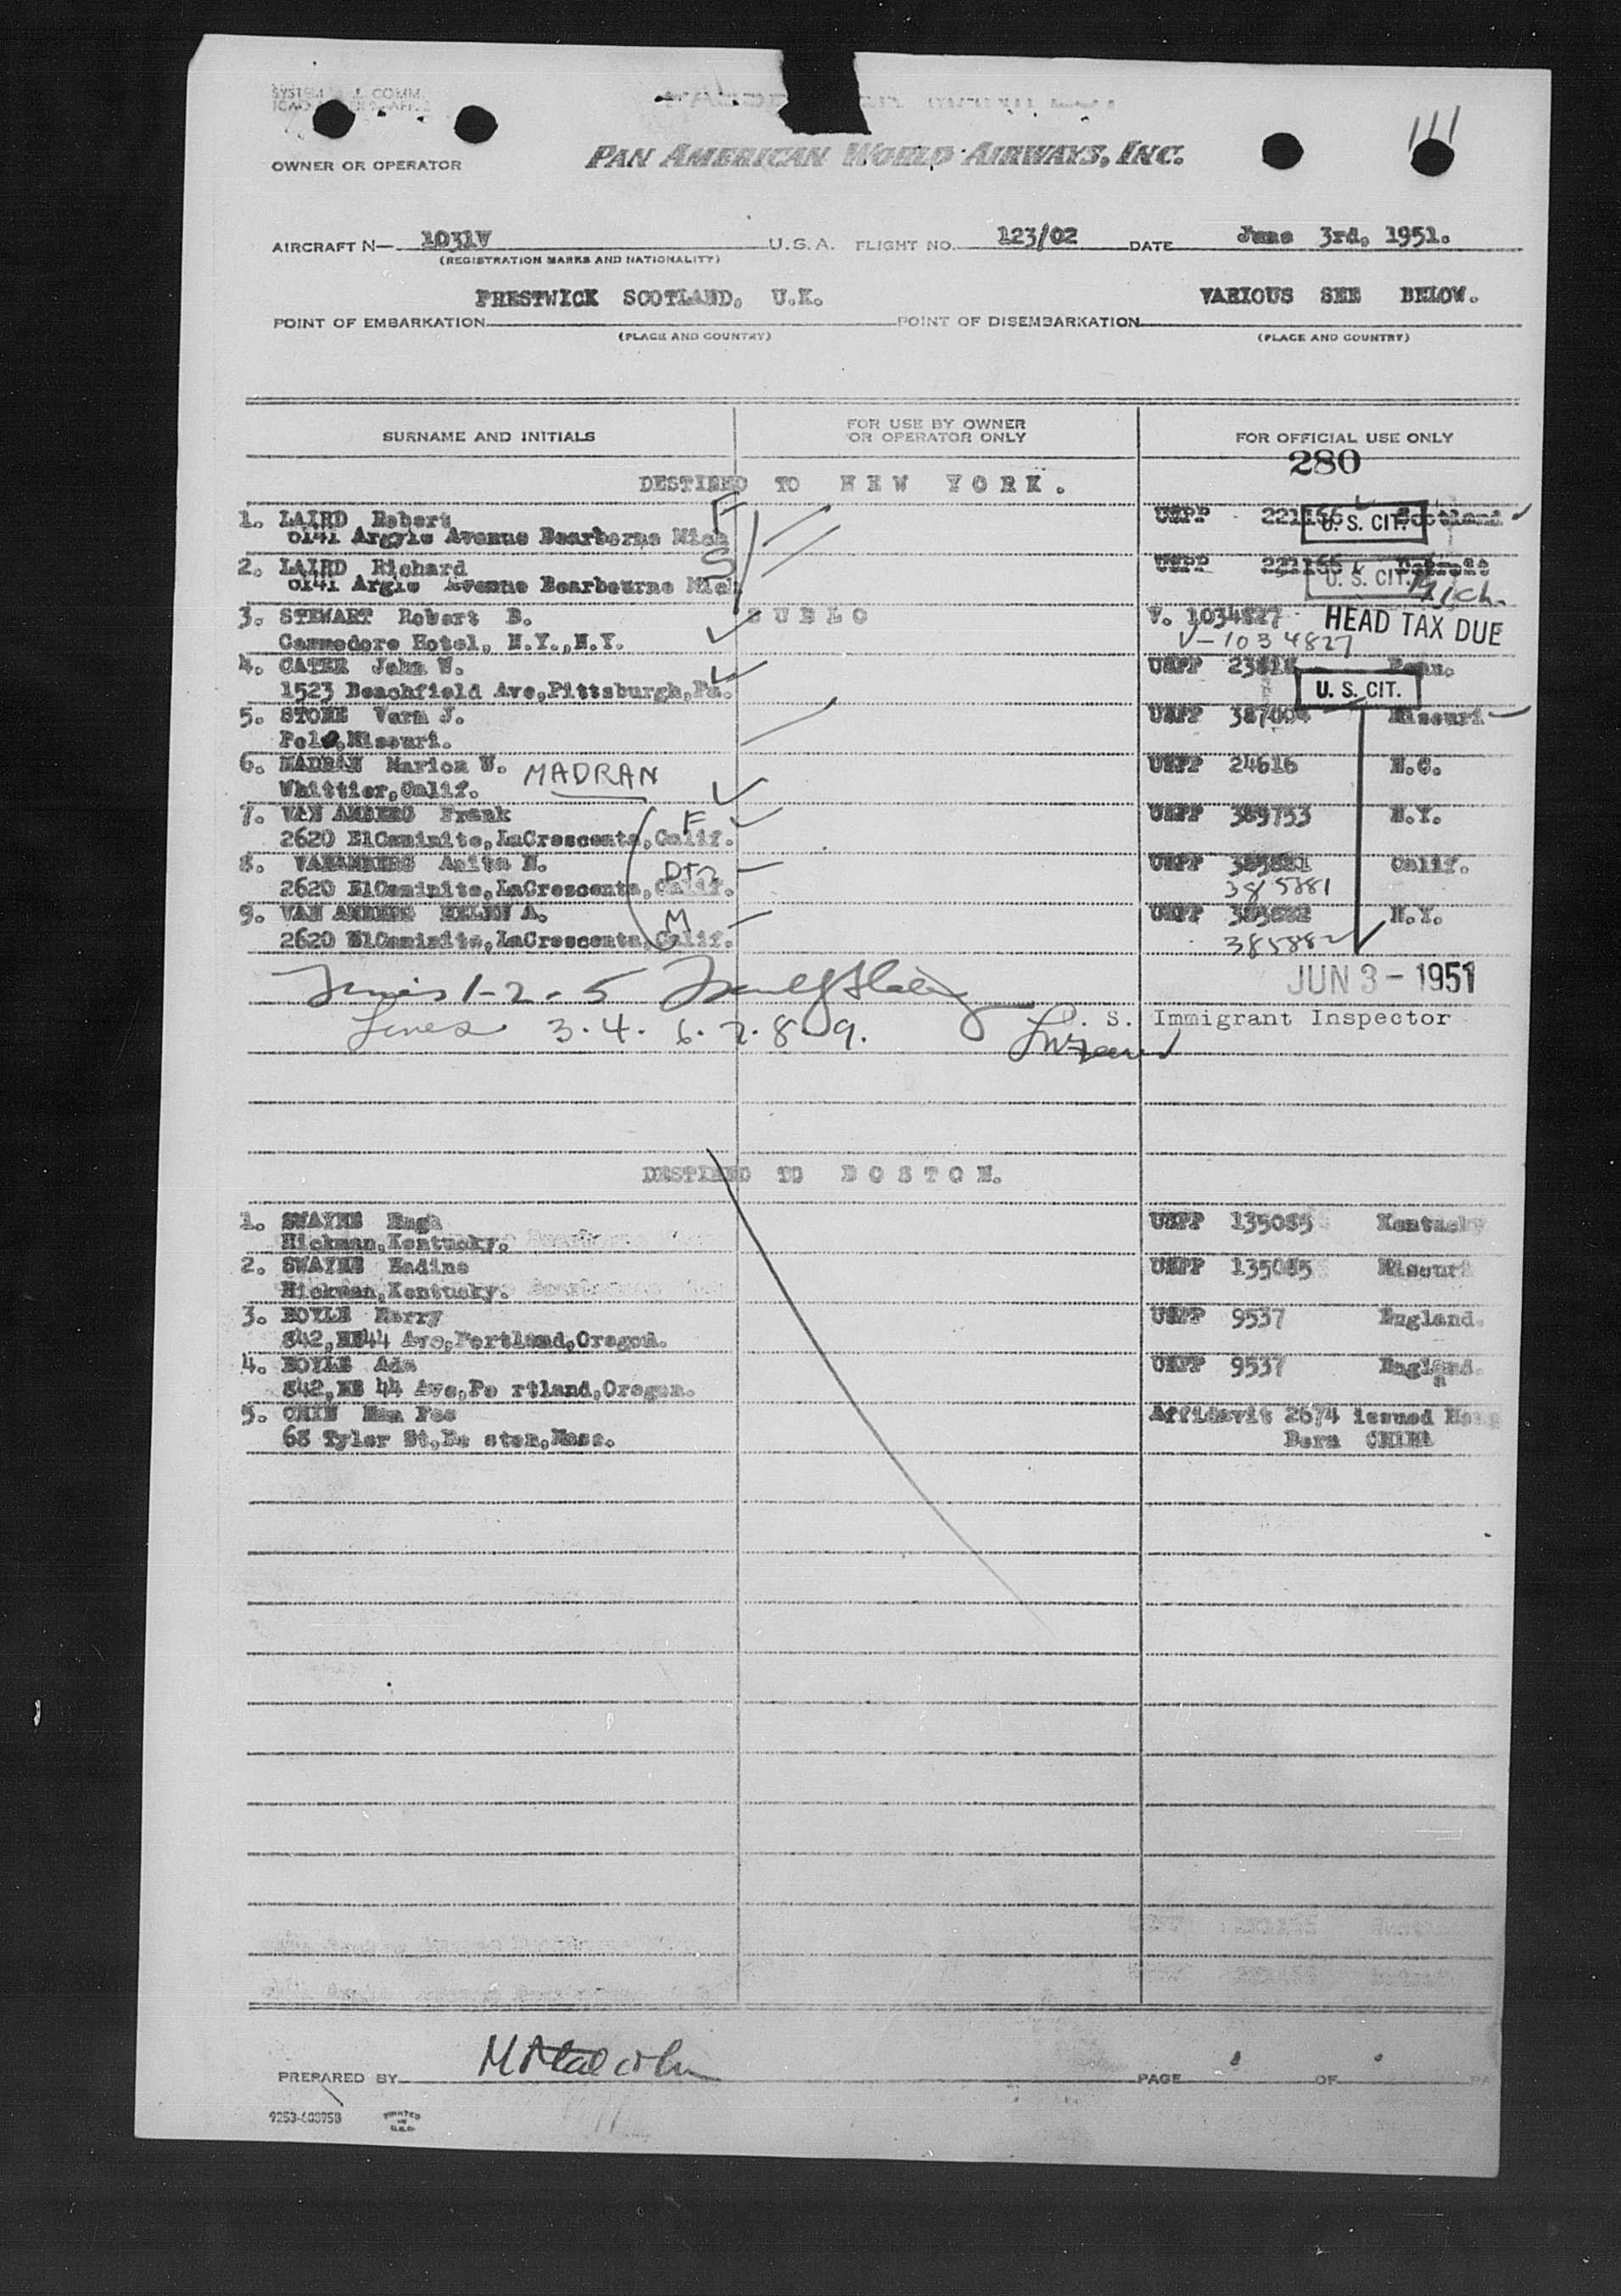 OWNER OR OPERATOR PAN AMERICAN WORLD AIRWAYS, INC.
111
AIRCRAFT N— 1031V U.S.A. FLIGHT NO. 123/02 DATE June 3rd, 1951.
(REGISTRATION MARKS AND NATIONALITY)
PRESTWICK SCOTLAND, U.K. VARIOUS SEE BELOW.
POINT OF EMBARKATION POINT OF DISEMBARKATION
(PLACE AND COUNTRY) (PLACE AND COUNTRY)
SURNAME AND INITIALS FOR USE BY OWNER OR OPERATOR ONLY FOR OFFICIAL USE ONLY
280
DESTINED TO N E W Y O R K .
1. LAIRD Robert F USPP 221166 Scotland
6141 Argyle Avenue Bearborne Mich U. S. CIT.
2. LAIRD Richard S USPP 221166
6141 Argle Avenue Bearbourne Mich U. S. CIT. Mich.
3. STEWART Robert B. S U B L O V. 1034827 HEAD TAX DUE
Commedore Hotel, N.Y.,N.Y. V-1034827
4. CATER John W. USPP 23418 Penn.
1523 Beachfield Ave,Pittsburgh,Pa. U. S. CIT.
5. STONE Vern J. USPP 387004 Missouri
Polo,Missouri.
6. MADRAN Marion W. MADRAN USPP 24616 N.C.
Whittier,Calif.
7. VAN AMBERG Frank F USPP 389753 N.Y.
2620 ElCaminito,LaCrescenta,Calif.
8. VANAMBERG Anita N. Dtr USPP 385881 Calif.
2620 ElCaminito,LaCrescenta,Calif. 385881
9. VAN AMBERG HELEN A. M USPP 385882 N.Y.
2620 ElCaminito,LaCrescenta,Calif. 385882
Lines 1-2-5 JUN 3 - 1951
U. S. Immigrant Inspector
Lines 3. 4. 6. 7. 8. 9.
DESTINED TO B O S T O N.
1. SWAYNE Hugh USPP 135085 Kentucky
Hickman,Kentucky.
2. SWAYNE Nadine USPP 135085 Missouri
Hickman,Kentucky.
3. BOYLE Harry USPP 9537 England.
842,NE44 Ave,Portland,Oregon.
4. BOYLE Ada USPP 9537 England.
842,NE 44 Ave,Po rtland,Oregon.
5. CHIN Affidavit 2674 issued Hong
68 Tyler St,Bo ston,Mass. Born CHINA
PREPARED BY M Malcolm PAGE OF
9253-600958 PRINTED IN U.S.A.